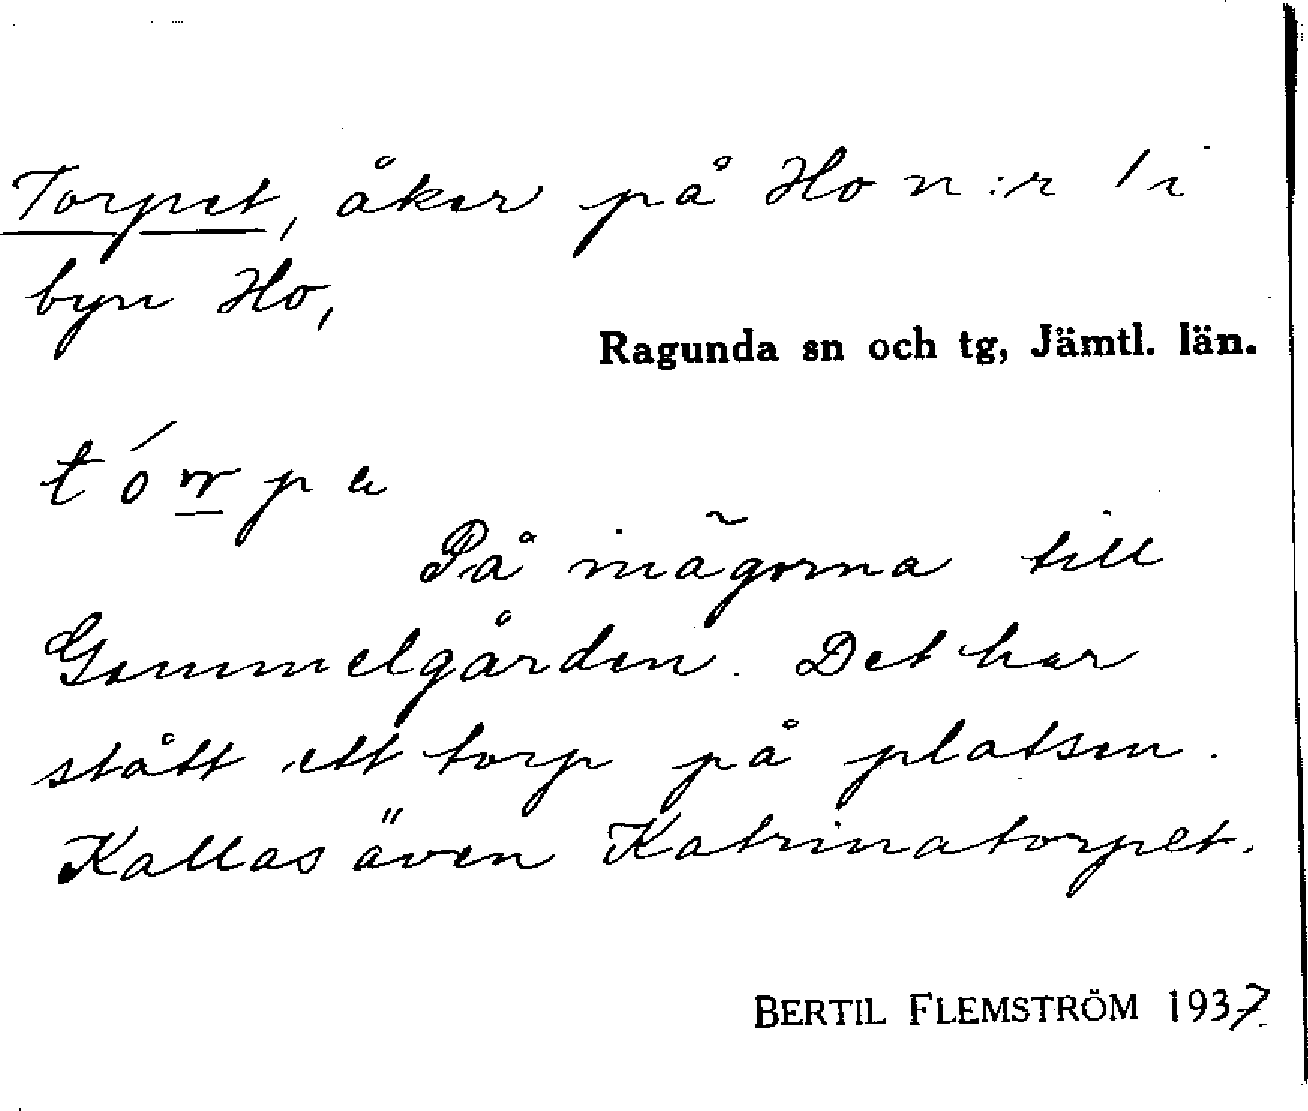 Torpet, åker på Ho n:r 1 i
byn Ho,
Ragunda sn och tg, Jämtl. län.
På inägorna till
Gammelgården. Det har
stått ett torp på platsen.
Kallas även Katrinatorpet.
BERTIL FLEMSTRÖM 1937